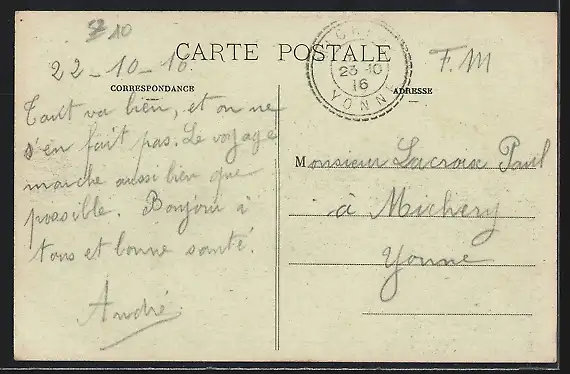 Z 10
CARTE POSTALE
22-10-16
F.M
CORRESPONDANCE
ADRESSE
23-10
16
YONNE
Tout va bien, et on ne
s'en fait pas. Le voyage
marche aussi bien que
possible. Bonjour à
tous et bonne santé.
André
Monsieur Lacroix Paul
à Michery
Yonne